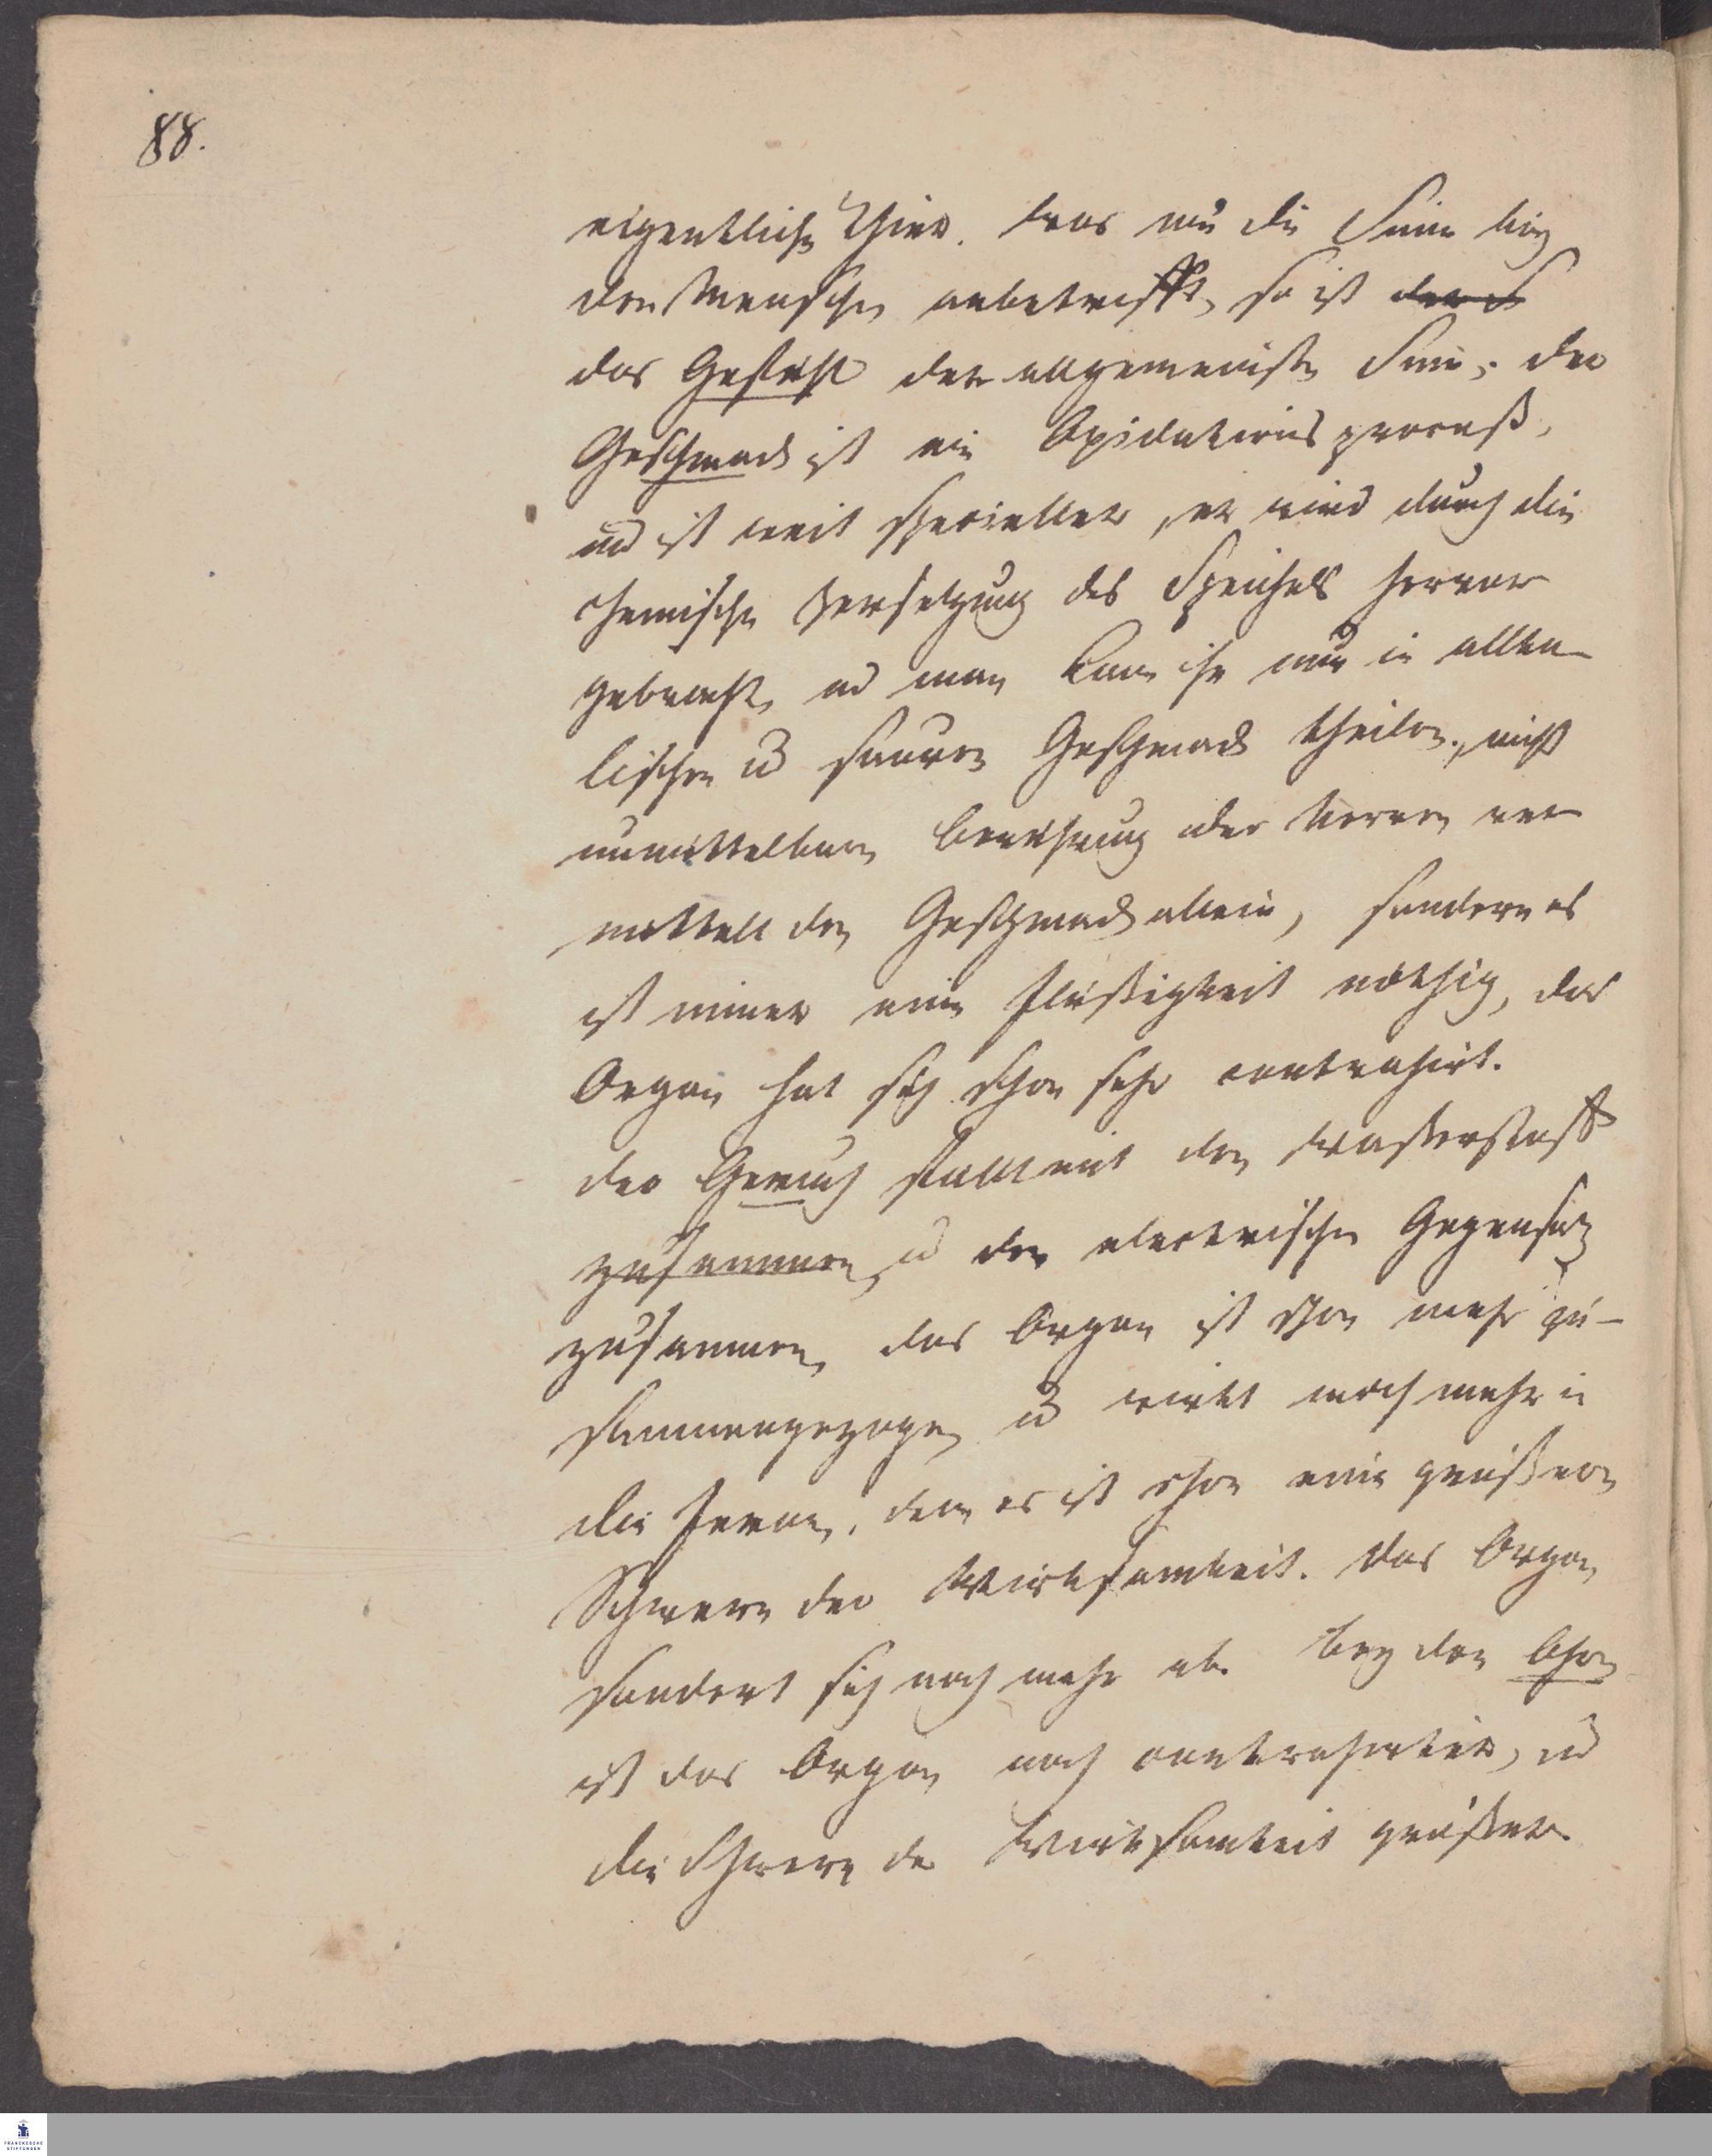 88.
eigentliche Thier. Was nun die Sinne bey
den Menschen anbetrifft, so ist der S
das Gefühl der allgemeinste Sinn; der
Geschmack ist ein Oxidations proceß,
und ist weit specieller, er wird durch die
chemische Zersetzung des Speichels hervor
gebracht, und man kann ihn nur in alka-
lischen u sauren Geschmack theilen, nicht
unmittelbare Berührung der Nerven ver
mittelt den Geschmack allein, sondern es
ist immer eine Flüßigkeit nöthig, das
Organ hat sich schon sehr contrahirt.
der Geruch fällt mit dem Wasserstoff
zusammen, u dem electrischen Gegensatz
zusammen, das Organ ist schon mehr zu-
sammengezogen u wirkt noch mehr in
die Ferne, denn es ist schon eine größere
Sphaere der Wirksamkeit. Das Organ
sondert sich noch mehr ab. bey dem Ohre
ist das Organ noch contrahirter, und
die Sphaere der Wirksamkeit größer.
FRANCKESCHE
STIFTUNGEN